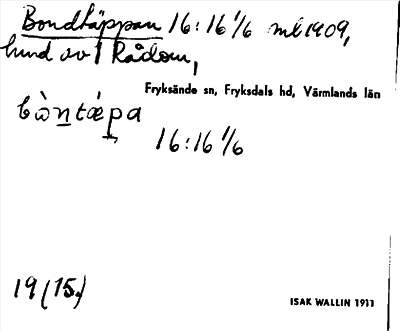 Bondtäppan 16:16 1/6 mtl 1909,
hmd av 1 Rådom,
Fryksände sn, Fryksdals hd, Värmlands län
bὼn̲tǽp̲a
16:16 1/6
19 (15.)
ISAK WALLIN 1911